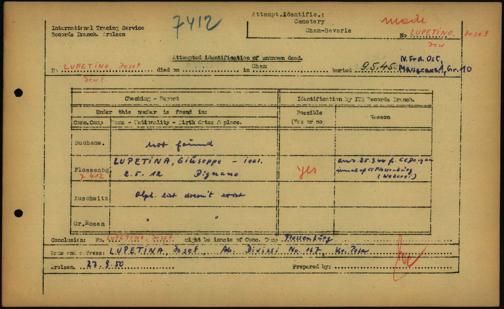 International Tracing Service
Records Branch, Arolsen
7412
Attempt.Identific.:
Cemetery
Cham-Bavaria
made
No LUPETINA, Josef
Jew
Attempted identification of unknown dead.
No LUPETINA Josef died on in Cham buried 9.5.45 N.Frd. Ost,
Jew
Checking - Report
Identification by ITS Records Branch.
Under this number is found in:
Possible
(Yes or no)
Reason
Conc.Camp
Name - Nationality - Birth dates & place.
Buchenw.
not found
Flossenbg.
7412
LUPETINA, Giuseppe - ital.
2.5.12 Dignano
yes
Auschwitz
Alph. list doesn't exist
Gr.Rosen
" "
Conclusion: No. LUPETINA, Josef might be inmate of Conc. Camp Flossenbürg
Name and address: LUPETINA, Josef, No. 147, Kr. Pola
Arolsen, 27.9.50
Prepared by: